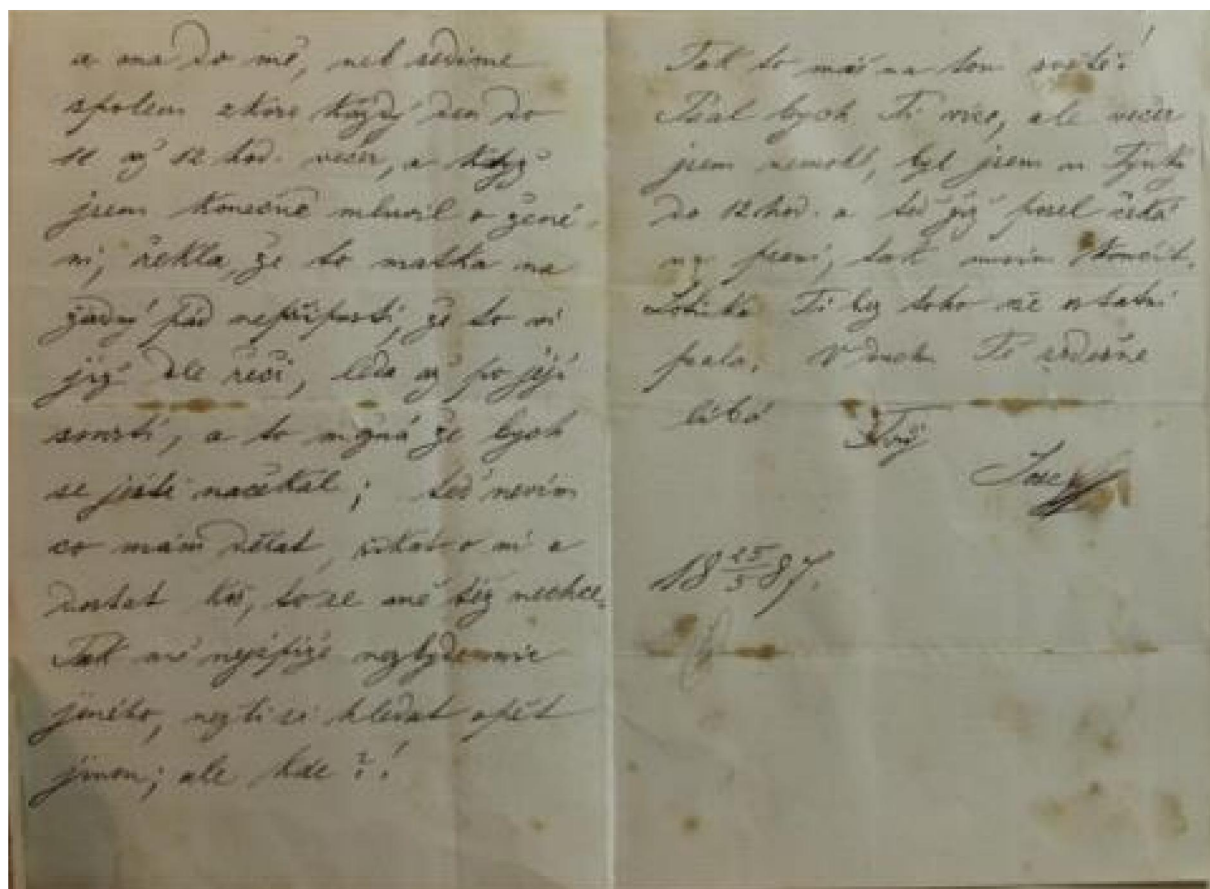 a ona do mě, neb sedíme
spolem skoro každý den do
až 12 hod. večer, a když
jsem konečně mluvil o žené-
ní, řekla, že to matka na
žádný pád nepřipustí, že to ví
již dle řeči, leda až po její
smrti, a to možná že bych
se ještě načekal; teď nevím
co mám dělat, o ni a
dostat koš, to se mě též nechce.
Tak mě nejspíše nezbyde nic
jiného, nežli si hledat opět
jinou; ale kde?!
Tak to máš na tom světě!
Psal bych Ti více, ale večer
jsem nemohl, byl jsem u Tynky
do 12 hod. a teď již posel čeká
na psaní, tak musím skončit.
Ti bez toho vše ostatní
psala. V duchu Tě srdečně
líbá
Tvůj
Josef
18 25/5 87.